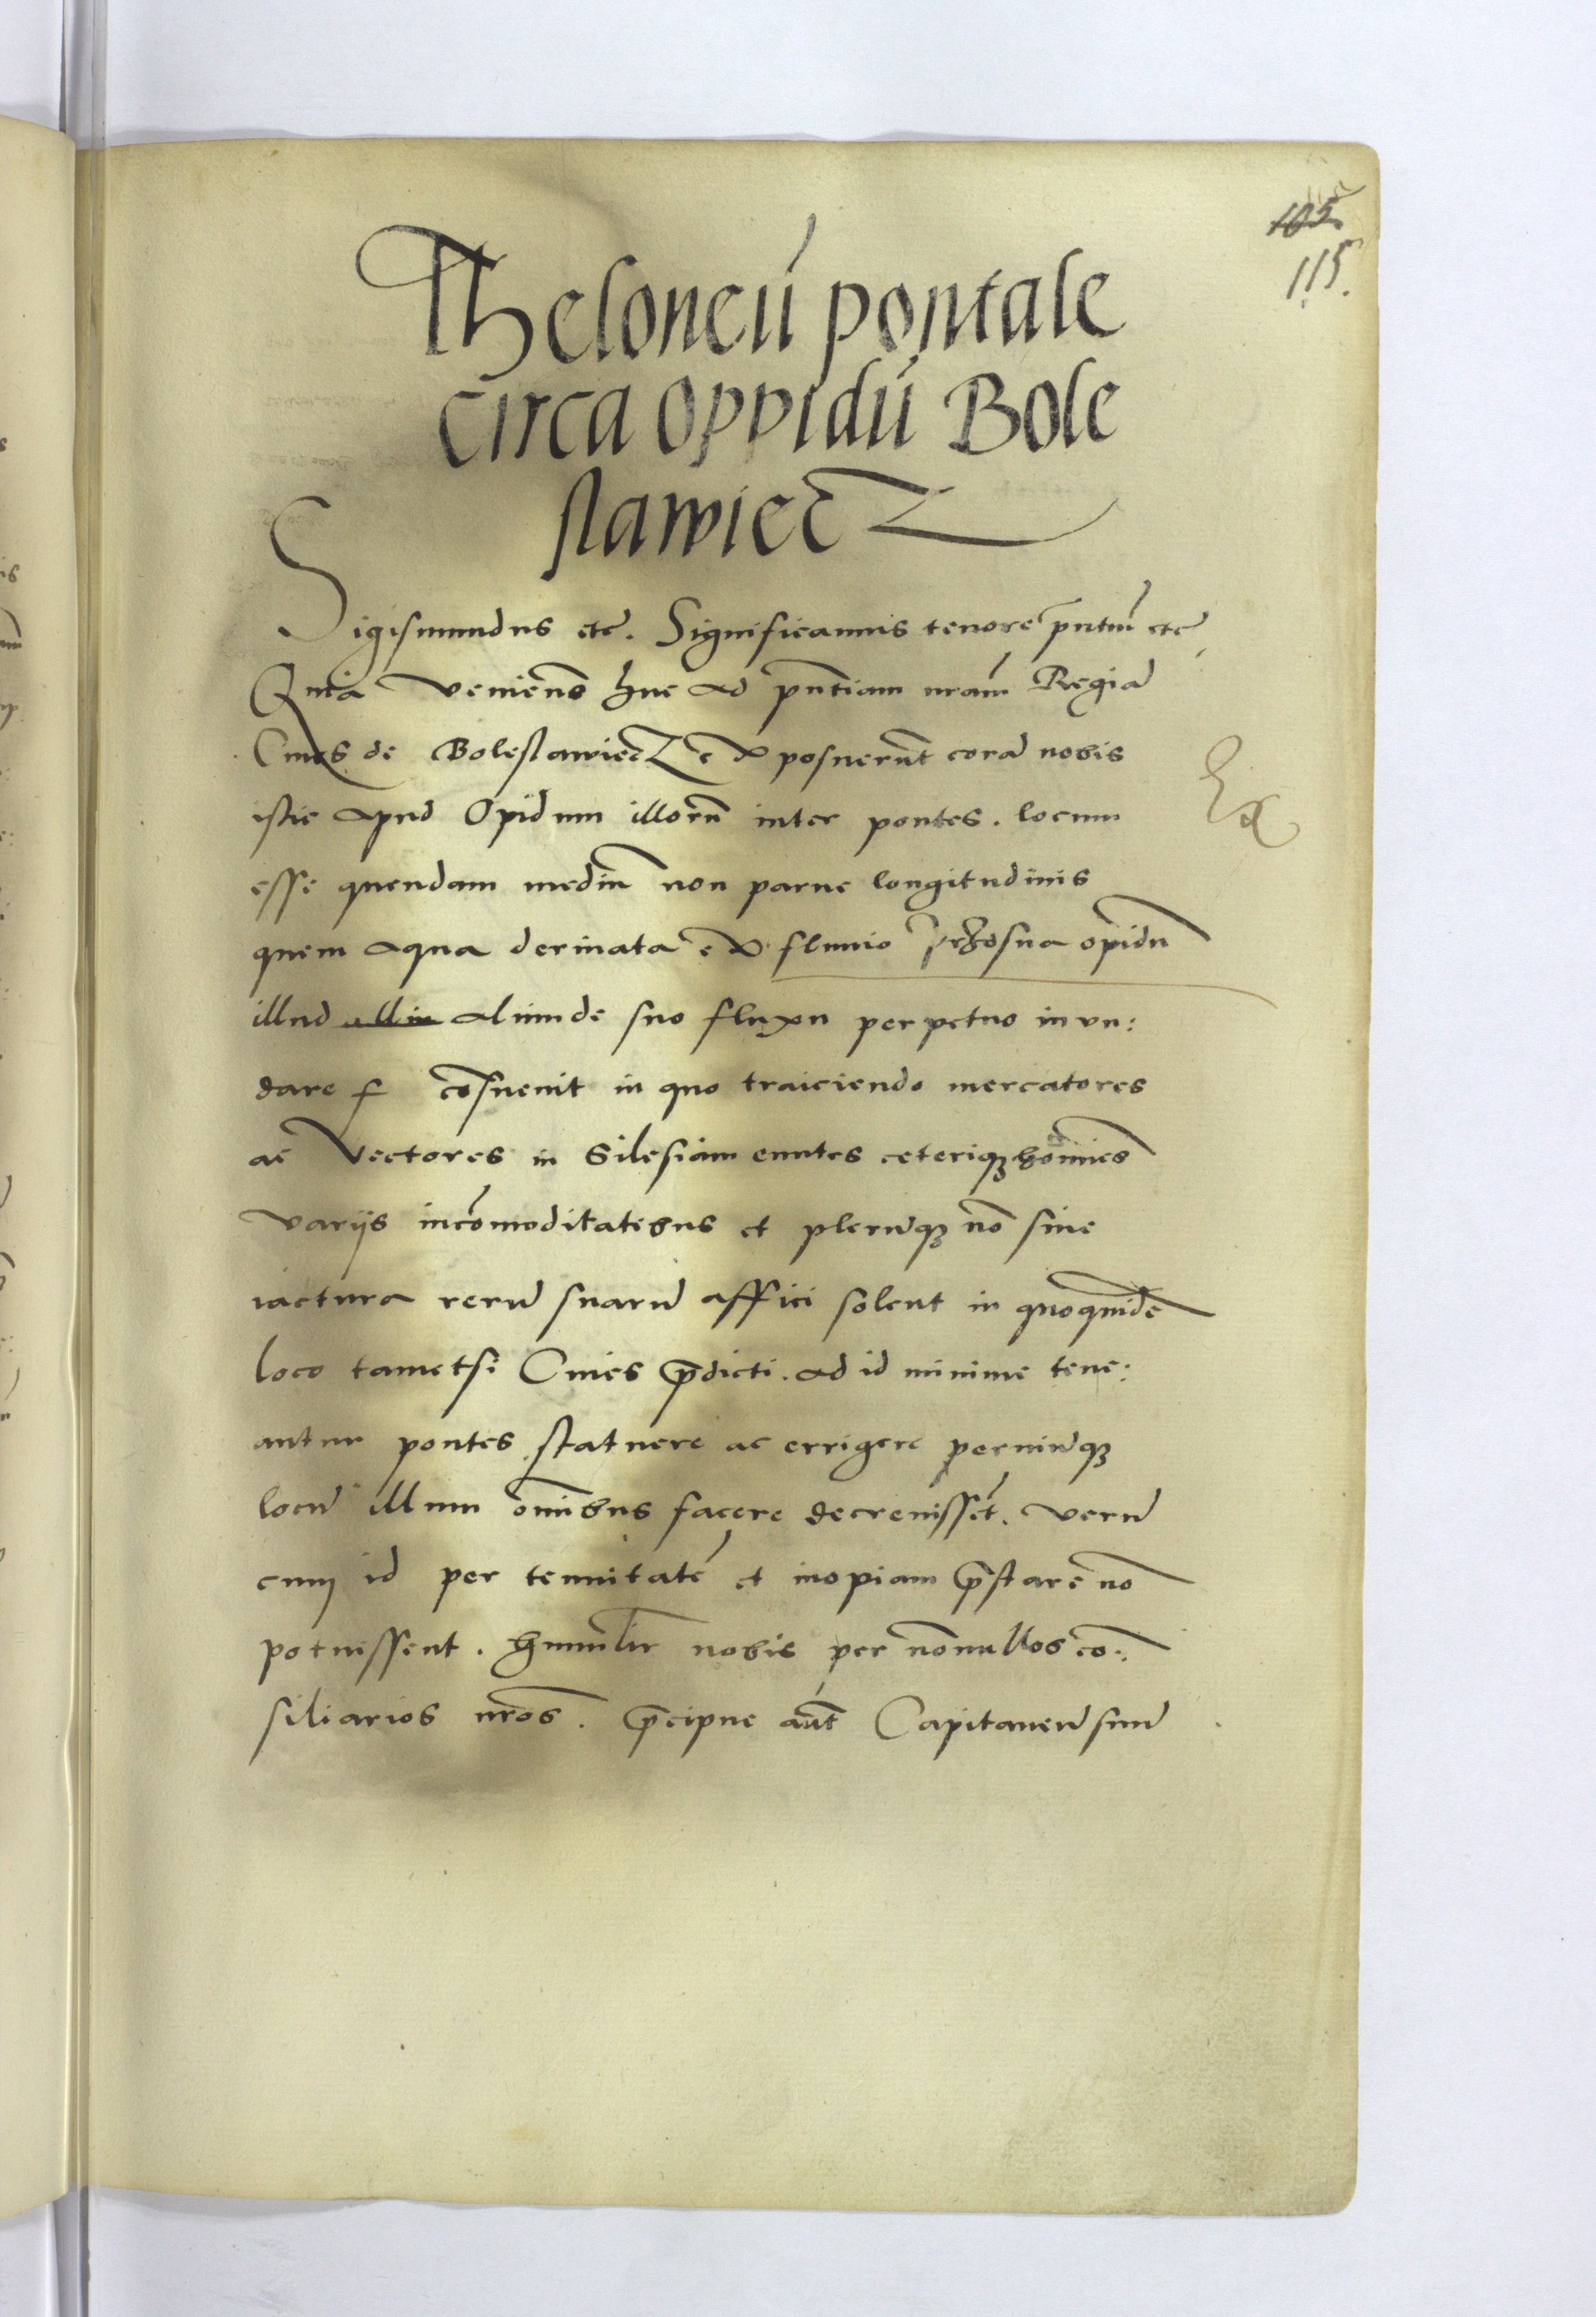 105
115.
Theloneu pontale
circa oppidu Bole
slawiecz
Sigismundus etc. Significamus tenore pntm etc
Quia venienes huc ad pntiam nram Regia
Cives de Boleslawiecz exposuerunt cora nobis
istic apud Opidum illoru inter pontes. locum
esse quendam mediu non parve longitudinis
quem aqua derivata ex fluvio Przosna opidu
illud alliu aliunde suo fluxu perpetuo inun:
dare consuevit in quo traiiciendo mercatores
ac Vectores in Silesiam euntes ceteriq homines
varijs incomoditatibus et pleruq no sine
iactura reru suaru affici solent in quoquide
loco tametsi Cives pdicti. ad id minime tene:
antur pontes statuere ac errigere perviuq
locu illum omibus facere decrevisset. veru
cum id per tenuitate et inopiam pstare no
potuissent. humilir nobis per nonnullos co:
siliarios nros. pcipue aut Capitaneu suu